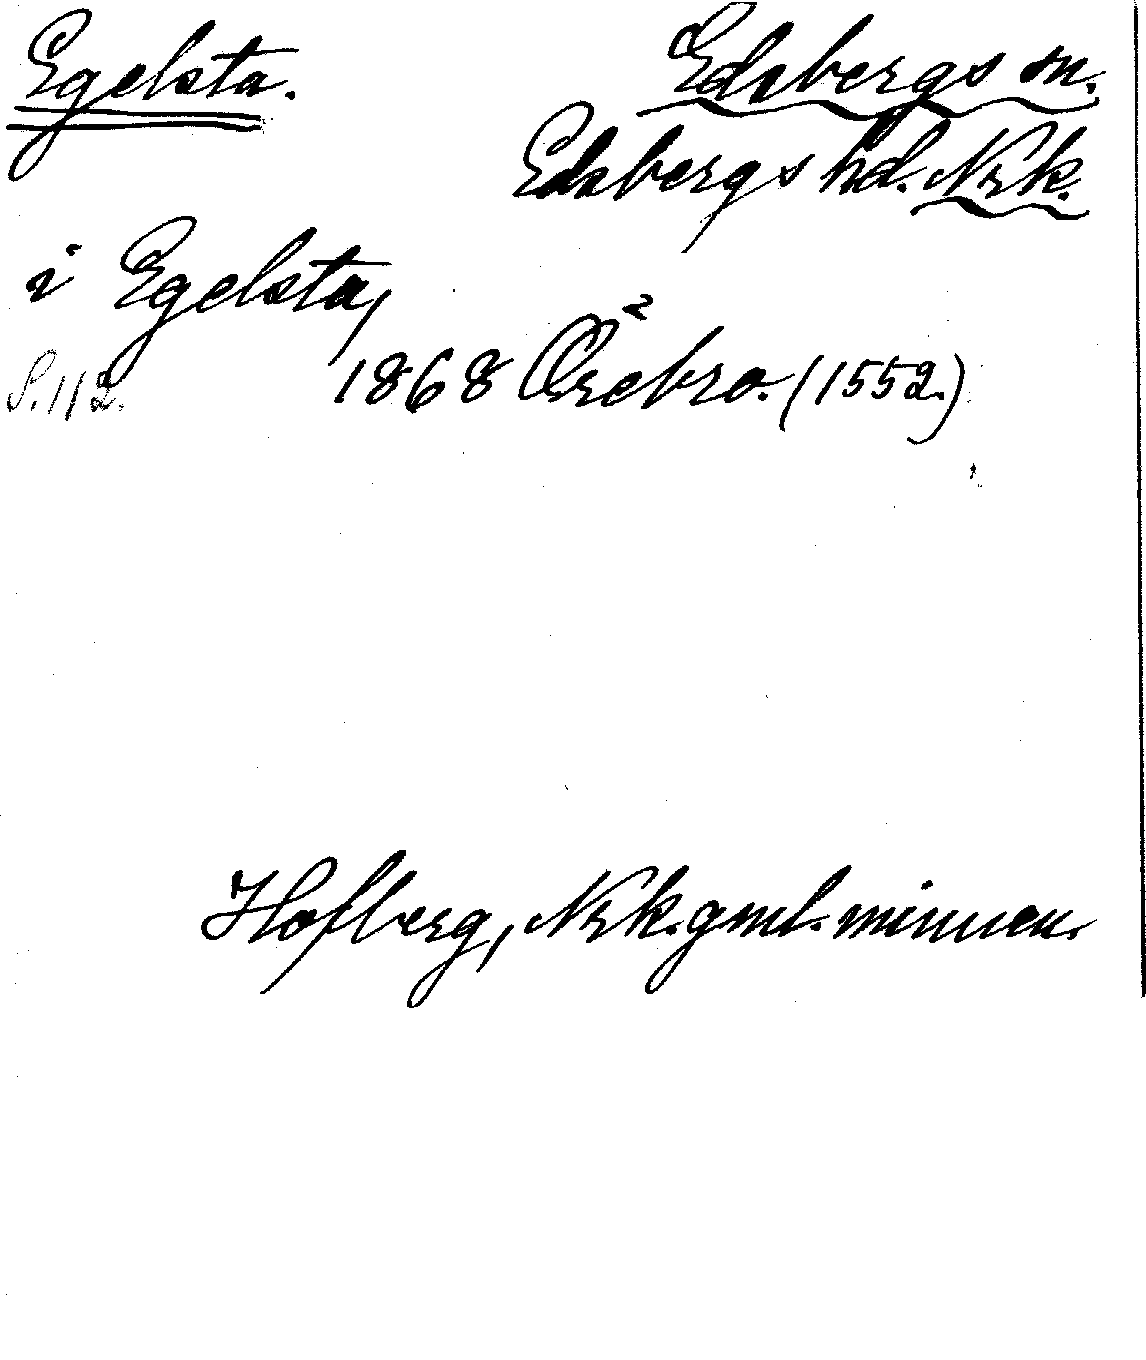 Egelsta. Edsbergs sn.
Edsbergs hd. Nrk.
i Egelsta,
S. 112. 1868 Örebro. (1552.)
Hofberg, Nrk. gml. minnen.